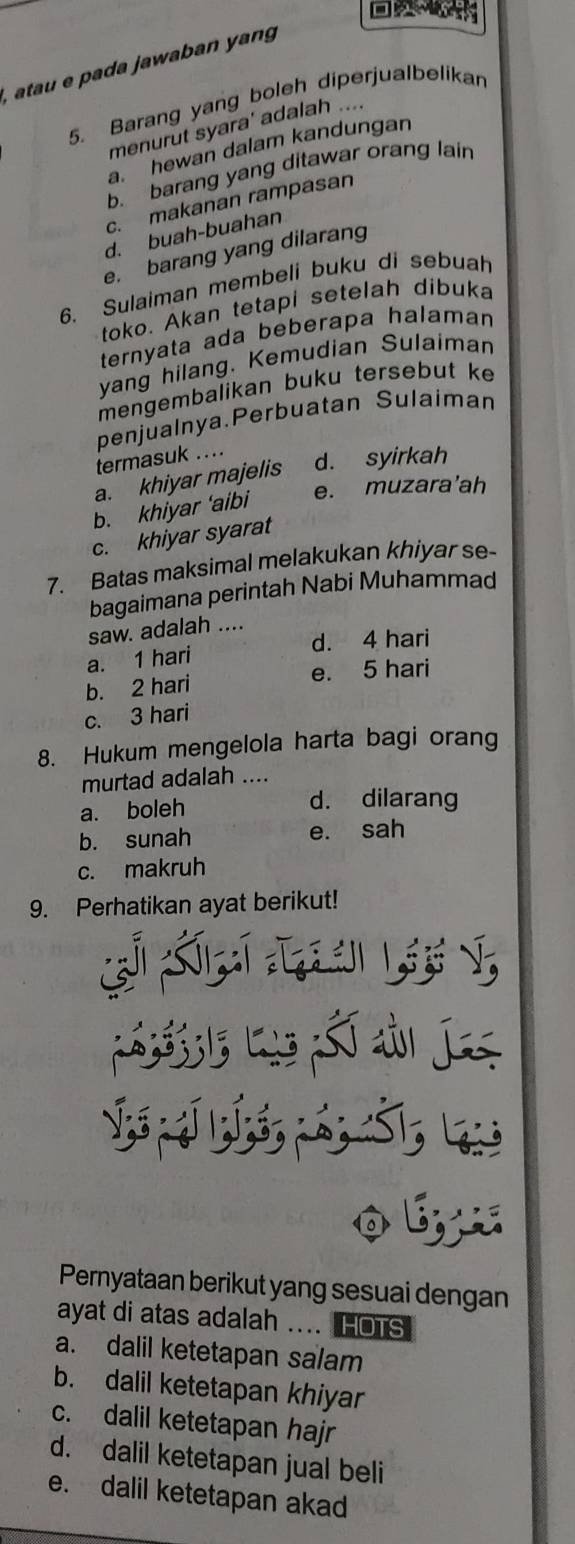 l, atau e pada jawaban yang
5. Barang yang boleh diperjualbelikan
menurut syara' adalah ....
a. hewan dalam kandungan
b. barang yang ditawar orang lain
c. makanan rampasan
d. buah-buahan
e. barang yang dilarang
6. Sulaiman membeli buku di sebuah
toko. Akan tetapi setelah dibuka
ternyata ada beberapa halaman
yang hilang. Kemudian Sulaiman
mengembalikan buku tersebut ke
penjualnya.Perbuatan Sulaiman
termasuk ....
a. khiyar majelis
b. khiyar 'aibi
c. khiyar syarat
d. syirkah
e. muzara'ah
7. Batas maksimal melakukan khiyar se-
bagaimana perintah Nabi Muhammad
saw. adalah ....
a. 1 hari
b. 2 hari
c. 3 hari
d. 4 hari
e. 5 hari
8. Hukum mengelola harta bagi orang
murtad adalah ....
a. boleh
b. sunah
c. makruh
d. dilarang
e. sah
9. Perhatikan ayat berikut!
وَلَا تُؤْتُوا السُّفَهَاءَ أَمْوَالَكُمُ الَّتِيْ
جَعَلَ اللهُ لَكُمْ قِيٰمًا وَّارْزُقُوْهُمْ
فِيْهَا وَاكْسُوْهُمْ وَقُوْلُوْا لَهُمْ قَوْلًا
مَّعْرُوْفًا ۝٥
Pernyataan berikut yang sesuai dengan
ayat di atas adalah .... HOTS
a. dalil ketetapan salam
b. dalil ketetapan khiyar
c. dalil ketetapan hajr
d. dalil ketetapan jual beli
e. dalil ketetapan akad